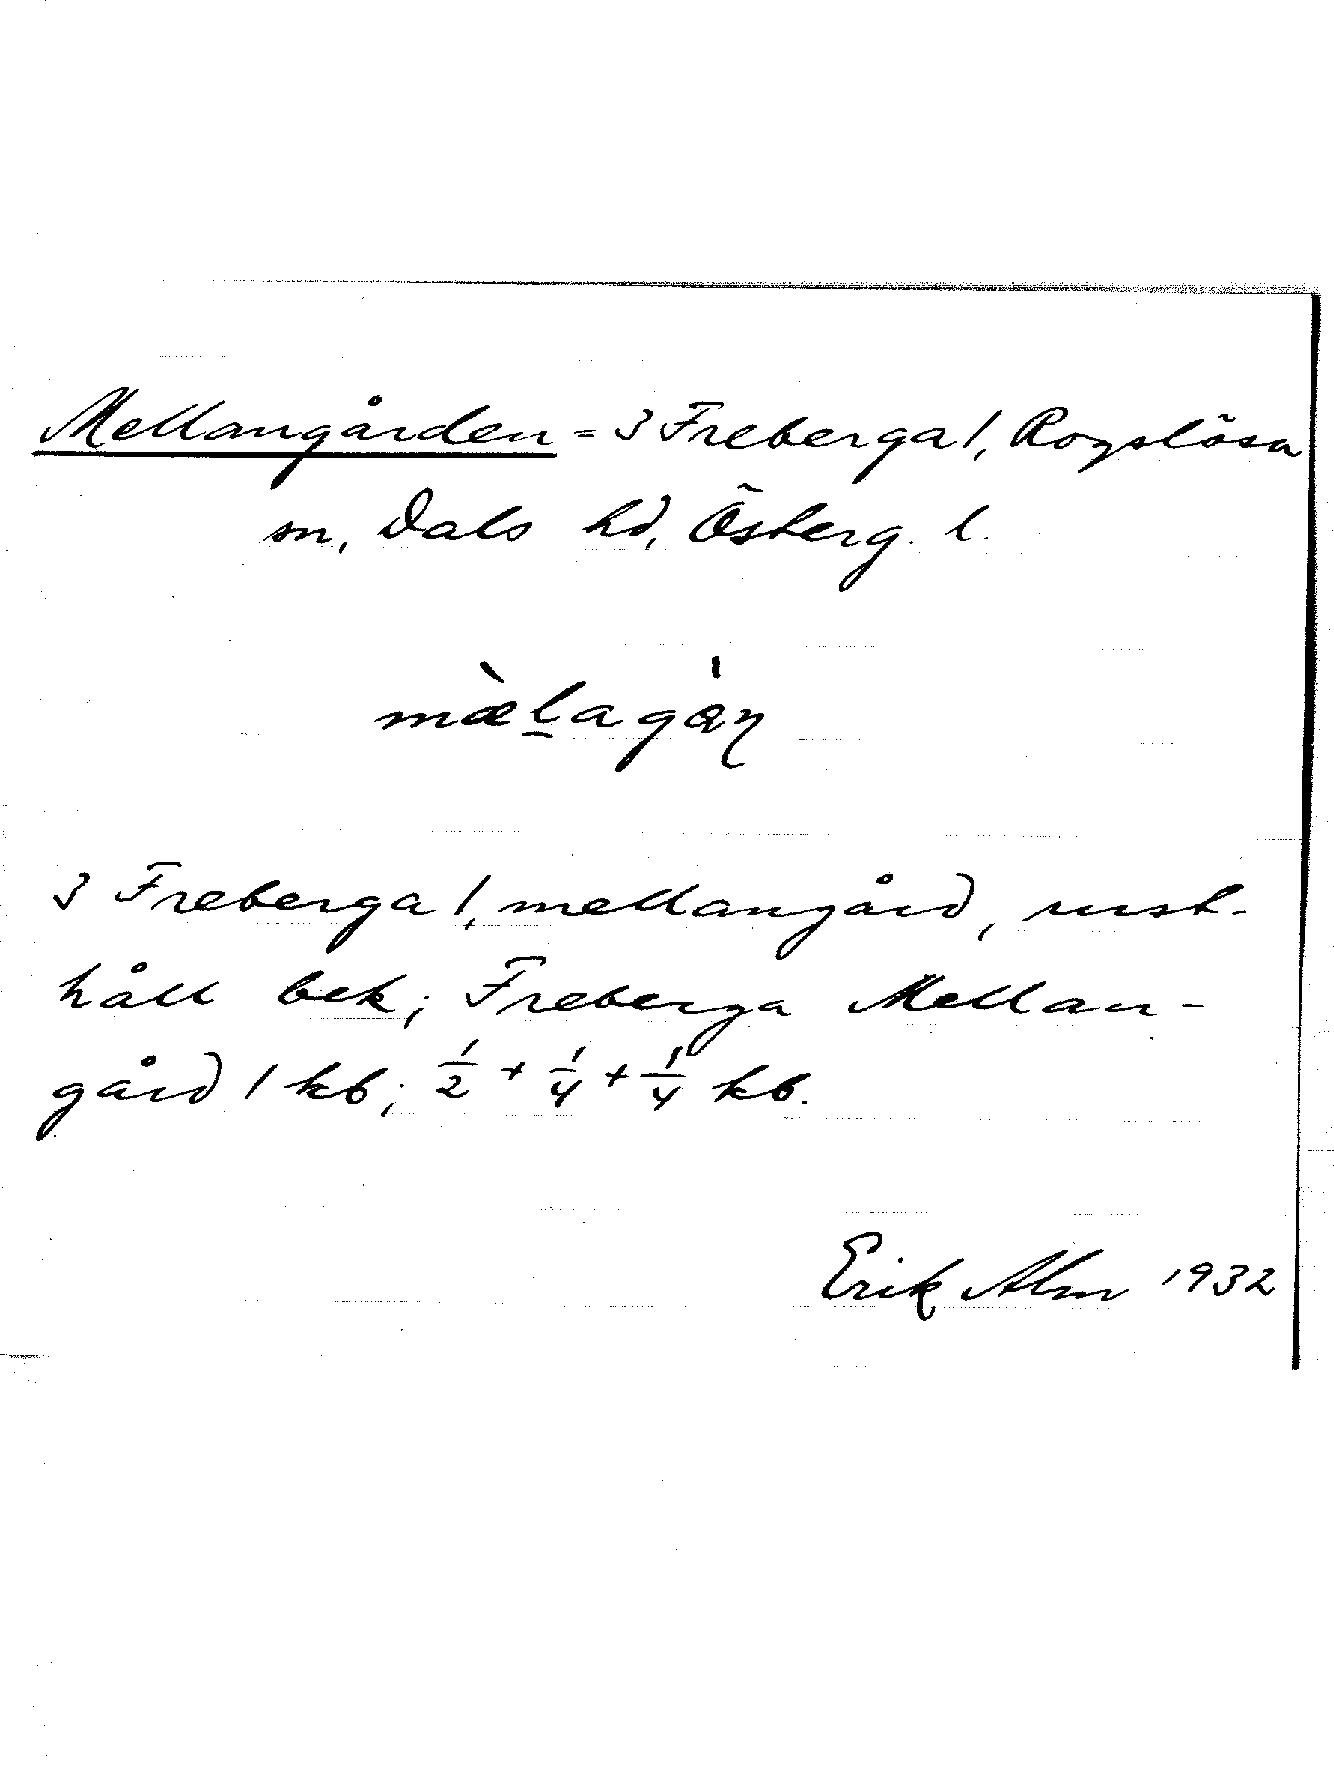 Mellangården = 3 Freberga 1, Rogslösa
sn, Dals hd, Österg. l.
mæ̀l̠agɑ̀ɳ
3 Freberga 1, mellangård, rust-
håll bek; Freberga Mellan-
gård 1 kb; 1/2 + 1/4 + 1/4 kb.
Erik Alm 1932